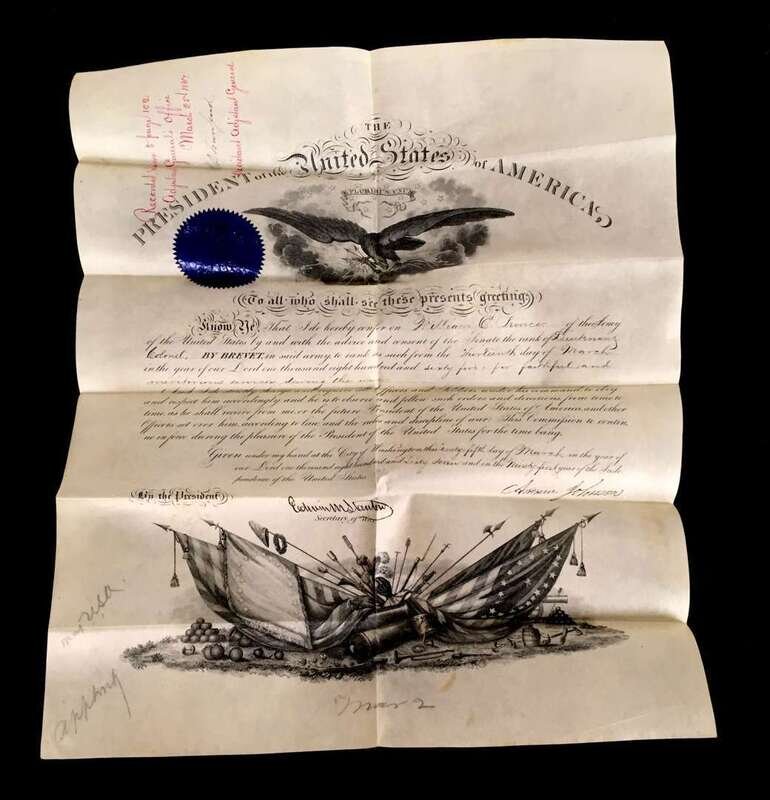 Recorded Vol 5 page 102
Adjutant General's Office
March 25th 1867
Assistant Adjutant General
THE
PRESIDENT of the United States of AMERICA,
E PLURIBUS UNUM
To all who shall see these presents greeting:
Know Ye, That I do hereby confer on William C. of the Army
of the United States by and with the advice and consent of the Senate the rank of Lieutenant
Colonel, BY BREVET, in said army to rank as such from the Thirteenth day of March
in the year of our Lord one thousand eight hundred and sixty five: for faithful and
meritorious service during the
and respect him accordingly and he is to observe and follow such orders and directions from time to
time as he shall receive from me, or the future President of the United States of America, and other
Officers set over him, according to law and the rules and discipline of war. This Commission to contin-
ue in force during the pleasure of the President of the United States for the time being.
Given under my hand at the City of Washington this twenty fifth day of March, in the year of
our Lord one thousand eight hundred and sixty seven and in the Ninety first year of the Inde-
pendence of the United States.
By the President
Andrew Johnson
Edwin M Stanton
Secretary of War